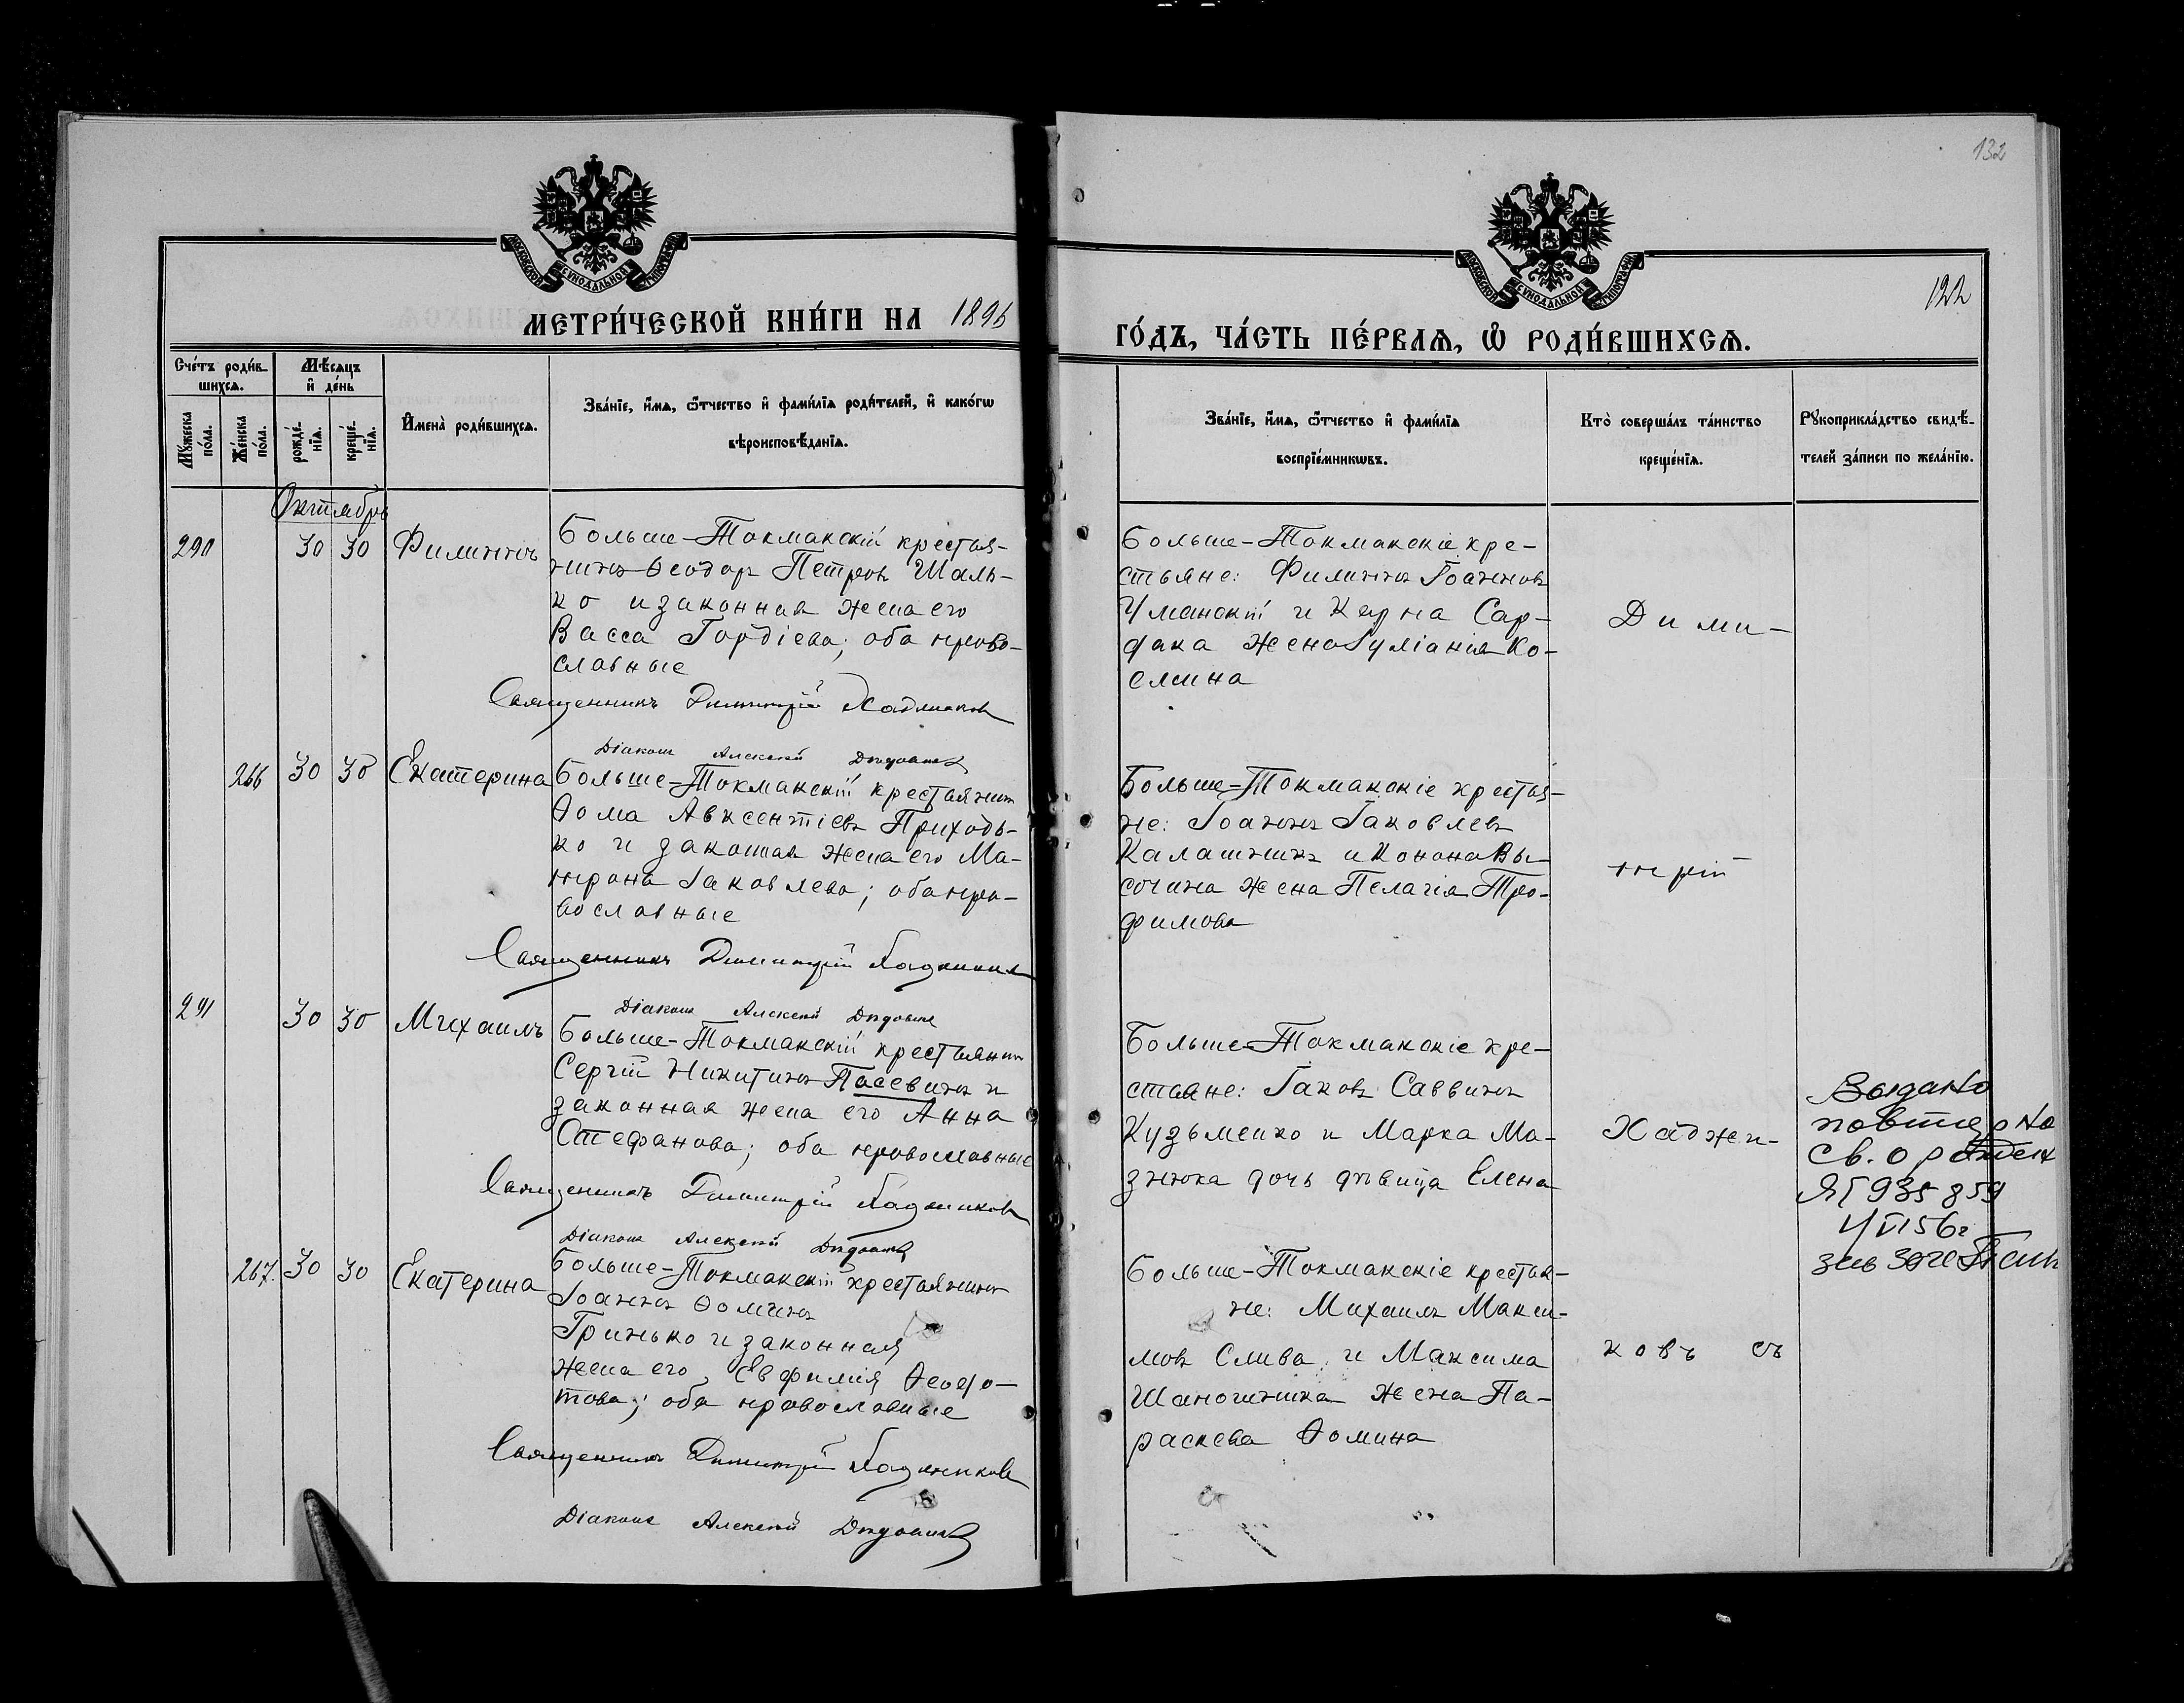 132
МОСКОВСКОЙ СѴНОДАЛЬНОЙ ТИПОГРАФІИ
МОСКОВСКОЙ СѴНОДАЛЬНОЙ ТИПОГРАФІИ
МЕТРИ́ЧЕСКОЙ КНИ́ГИ НА 1896
ГО́ДЪ, ЧА́СТЬ ПЕ́РВАѦ, Ѡ РОДИ́ВШИХСѦ.
122
Сче́тъ роди́в-
шихсѧ.
Мѣ́сѧцъ
и҆ де́нь
Мꙋ́жеска
по́ла.
Же́нска
по́ла.
рожде́-
нїѧ.
креще́-
нїѧ.
И҆мена̀ роди́вшихсѧ.
Зва́нїе, и҆́мѧ, ѻ҆́тчество и҆ фами́лїѧ роди́телей, и҆ како́гѡ
вѣроисповѣ́данїѧ.
Зва́нїе, и҆́мѧ, ѻ҆́тчество и҆ фами́лїѧ
воспрїе́мникѡвъ.
Кто̀ соверша́лъ та́инство
креще́нїѧ.
Рꙋкоприкла́дство свидѣ́-
телей за́писи по жела́нїю.
Октябрь
290 30 30 Филиппъ
Больше-Токмакскій крестья-
нинъ Ѳеодоръ Петровъ Шаль-
ко и законная жена его
Васса Гордіева; оба право-
славные
Священникъ Димитрій Хаджиновъ
Діаконъ Алексій
Больше-Токмакскіе кре-
стьяне: Филиппъ Іоанновъ
Уманскій и Карпа Сар-
дака жена Іуліанія Ко-
смина
Дими-
266 30 30 Екатерина
Больше-Токмакскій крестьянинъ
Ѳома Авксентіевъ Приходь-
ко и законная жена его Ма-
трона Іаковлева; оба пра-
вославные
Священникъ Димитрій Хаджиновъ
Діаконъ Алексій
Больше-Токмакскіе крестья-
не: Іоаннъ Іаковлевъ
Калашникъ и Конона Вы-
сочина жена Пелагія Тро-
фимова
трій
291 30 30 Михаилъ
Больше-Токмакскій крестьянинъ
Сергій Никитинъ Пасевинъ и
законная жена его Анна
Стефанова; оба православные
Священникъ Димитрій Хаджиновъ
Діаконъ Алексій
Больше-Токмакскіе кре-
стьяне: Іаковъ Саввинъ
Кузьменко и Марка Ма-
знюка дочь дѣвица Елена
Хаджи-
Выдано
повторно
св. о рожден
ЯГ 935859
VI 56г
зав
267. 30 30 Екатерина
Больше-Токмакскій крестьянинъ
Іоаннъ Ѳоминъ
Гринько и законная
жена его Евфимія Ѳеодо-
това; оба православные
Священникъ Димитрій Хаджиновъ
Діаконъ Алексій
Больше-Токмакскіе крестья-
не: Михаилъ Макси-
мовъ Слива и Максима
жена Па-
раскева Ѳомина
ковъ съ